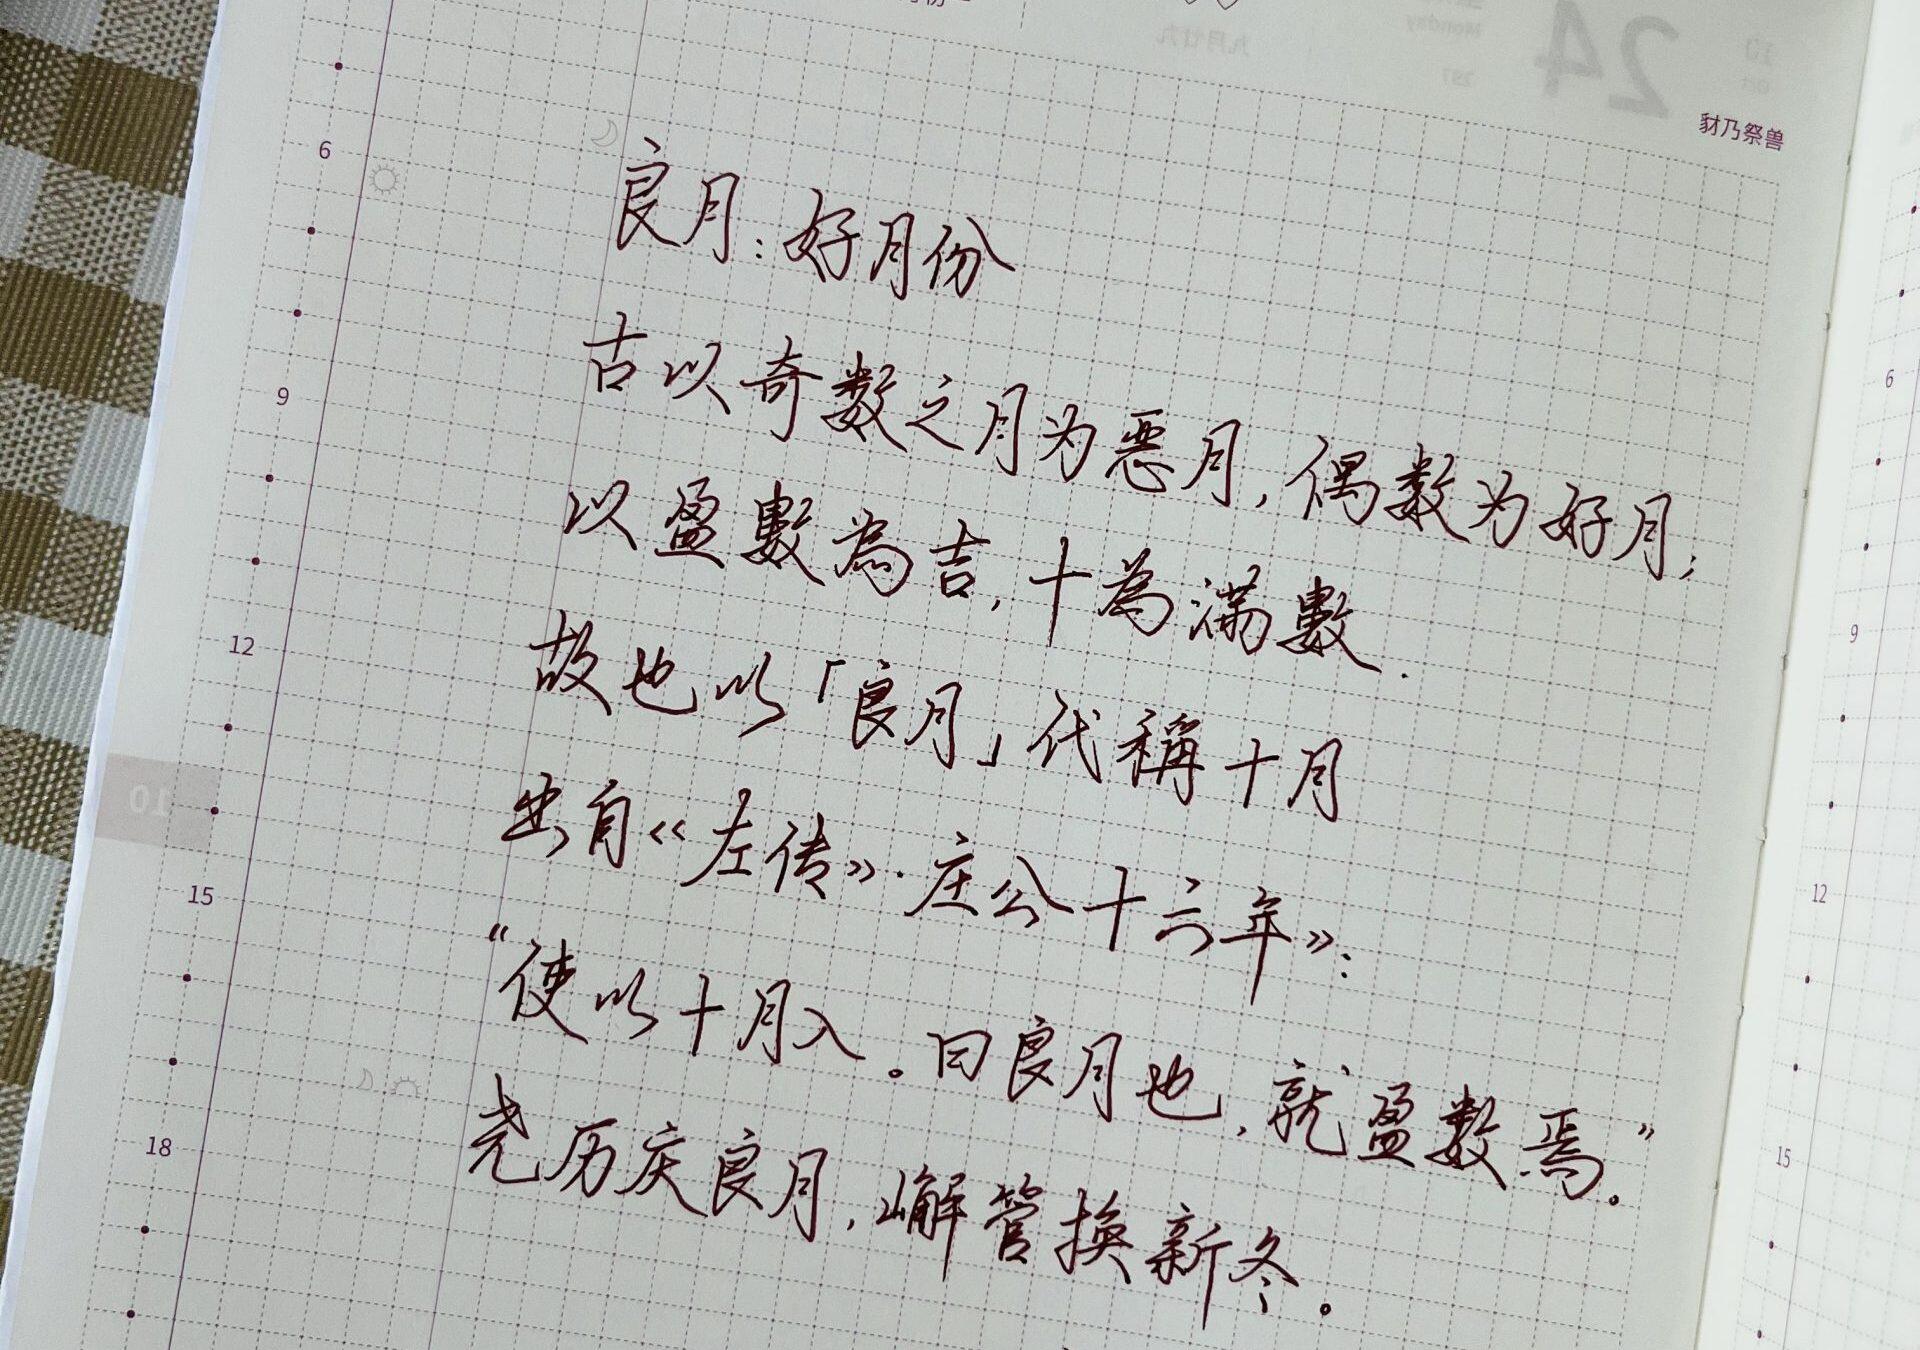 豺乃祭兽
良月：好月份
古以奇数之月为恶月，偶数为好月；
以盈數為吉，十為滿數.
故也以「良月」代稱十月
出自《左传》·庄公十六年》：
“使以十月入。曰良月也，就盈数焉。”
尧历庆良月，嶰管换新冬。
6
9
12
15
18
6
9
12
15